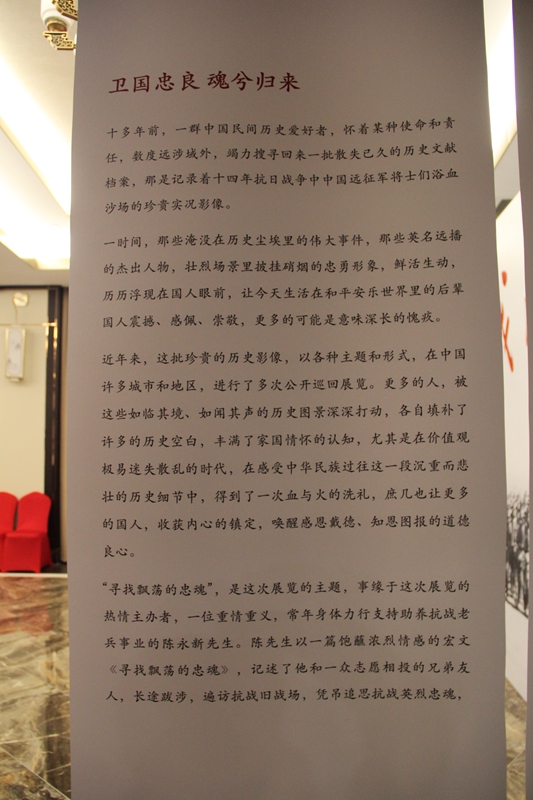 卫国忠良 魂兮归来
十多年前，一群中国民间历史爱好者，怀着某种使命和责
任，数度远涉域外，竭力搜寻回来一批散失已久的历史文献
档案，那是记录着十四年抗日战争中中国远征军将士们浴血
沙场的珍贵实况影像。
一时间，那些淹没在历史尘埃里的伟大事件，那些英名远播
的杰出人物，壮烈场景里披挂硝烟的忠勇形象，鲜活生动，
历历浮现在国人眼前，让今天生活在和平安乐世界里的后辈
国人震撼、感佩、崇敬，更多的可能是意味深长的愧疚。
近年来，这批珍贵的历史影像，以各种主题和形式，在中国
许多城市和地区，进行了多次公开巡回展览。更多的人，被
这些如临其境、如闻其声的历史图景深深打动，各自填补了
许多的历史空白，丰满了家国情怀的认知，尤其是在价值观
极易迷失散乱的时代，在感受中华民族过往这一段沉重而悲
壮的历史细节中，得到了一次血与火的洗礼，庶几也让更多
的国人，收获内心的镇定，唤醒感恩戴德、知恩图报的道德
良心。
“寻找飘荡的忠魂”，是这次展览的主题，事缘于这次展览的
热情主办者，一位重情重义，常年身体力行支持助养抗战老
兵事业的陈永新先生。陈先生以一篇饱蘸浓烈情感的宏文
《寻找飘荡的忠魂》，记述了他和一众志愿相投的兄弟友
人，长途跋涉，遍访抗战旧战场，凭吊追思抗战英烈忠魂，